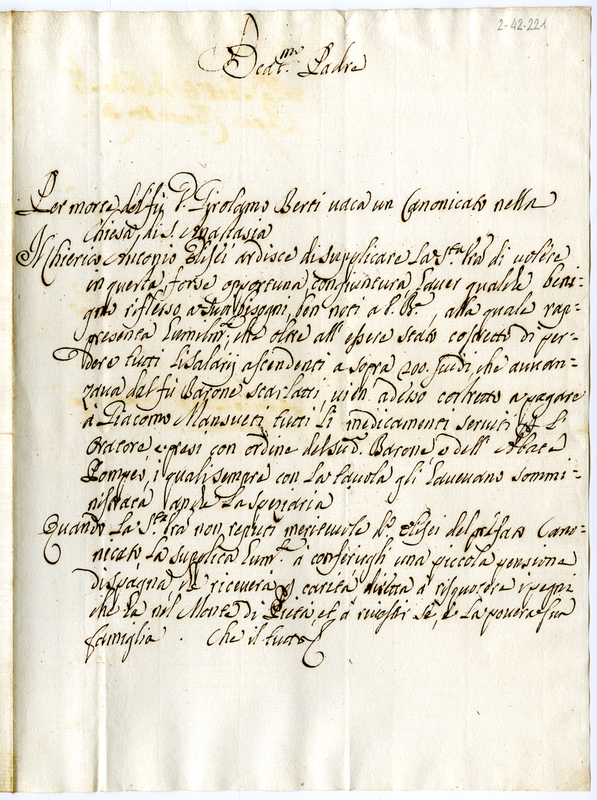 2-42-221
Beat.mo Padre
Per morte del fù Girolamo Berti uaca un Canonicato nella
Chiesa di S. Anastasia
Il Chierico Antonio Elisei ardisce di supplicare La S.tà Vra di uolere
in questa, forse opportuna congiuntura hauer qualche beni-
gno riflesso a suoi bisogni, ben noti a V. B.ne, alla quale rap-
presenta humilm.te, che oltre all' essere stato costretto di per-
dere tutti li salarij ascendenti a sopra 200. scudi, che auuan-
zaua dal fù Barone Scarlatti, uien adesso costretto a pagare
à Giacomo Mansueti tutti li medicamenti seruiti p l'
Oratore, e presi con ordine del sud. Barone, o dell' Abate
Pompeo, i quali sempre con la tauola gli haueuano sommi-
nistrata anche la speziaria
Quando La S.tà Vra non reputi meriteuole d.o Elisei del prefato Cano-
nicato, la supplica hum.te à conferirgli una piccola pensione
di Spagna, che riceuerà p carità diretta à risquotere i pegni
che ha nel Monte di Pietà, et à riuestir se, e la pouera sua
famiglia. Che il tutto